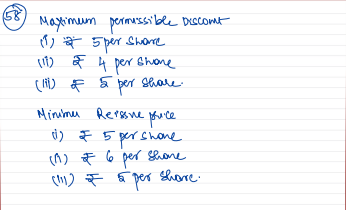 58
Maximum permissible Discount
(i) ₹ 5 per share
(ii) ₹ 4 per share
(iii) ₹ 5 per share.
Minimum Reissue price
(i) ₹ 5 per share
(ii) ₹ 6 per share
(iii) ₹ 5 per share.